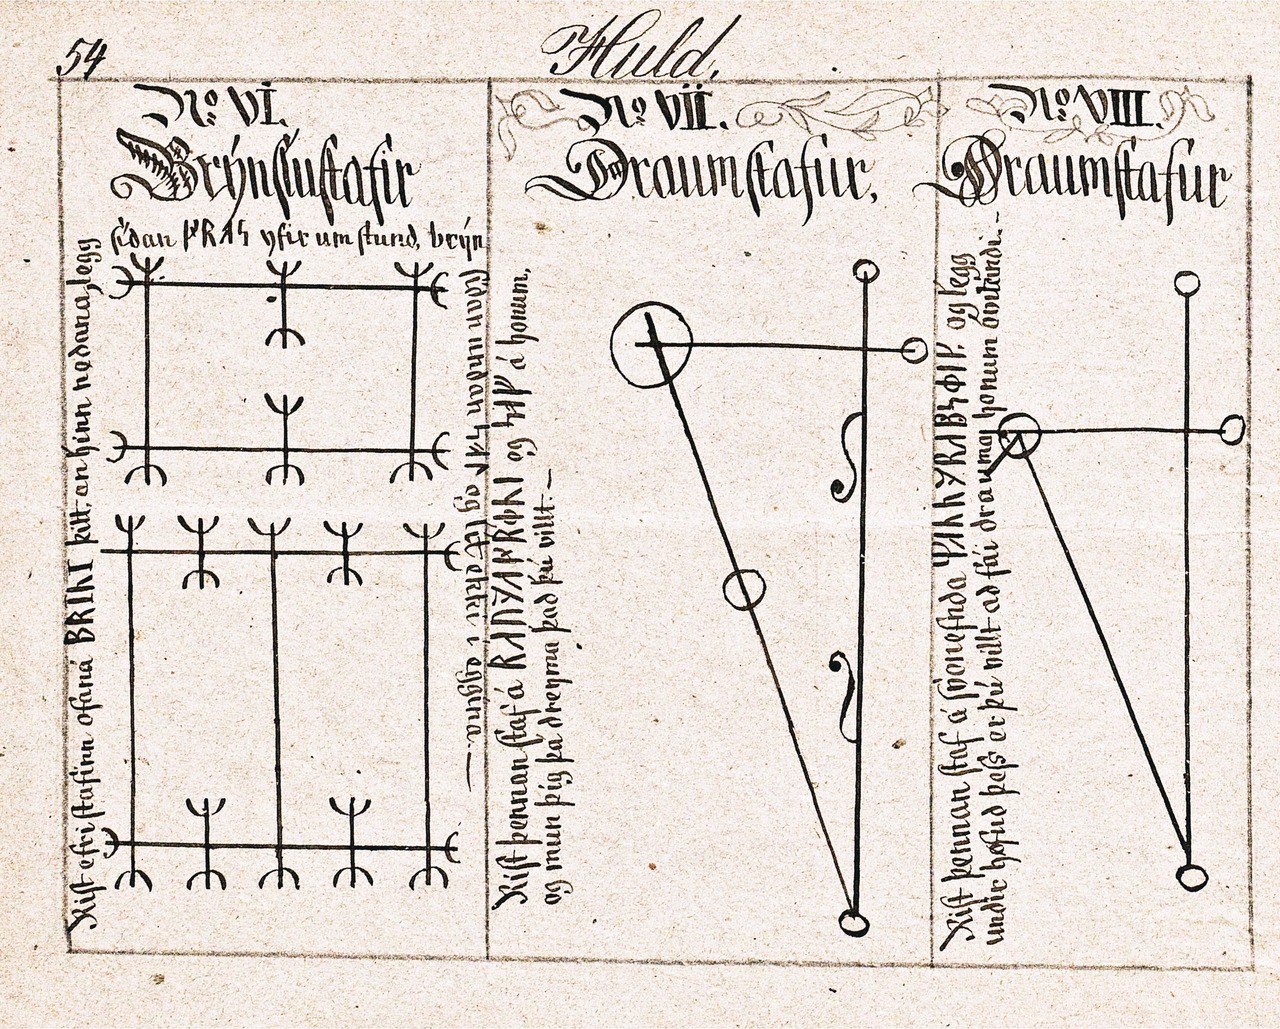 54
Huld.
No. VI.
Brýnslustafir
Rist efri stafinn ofaná ᛒRIᚾI þitt, en hinn neðaná, legg
síðan ᚠRᛅᛋ yfir um stund, brýn
síðan undan ᛋᛅᛚ og lít ekki í eggina.—
No. VII.
Draumstafur.
Rist þennan staf á og á honum,
og mun þig þá dreyma það þú villt.—
No. VIII.
Draumstafur
Rist þennan staf á svonefnda og legg
undir höfuð þess er þú villt að fái drauma honum óvitandi.—